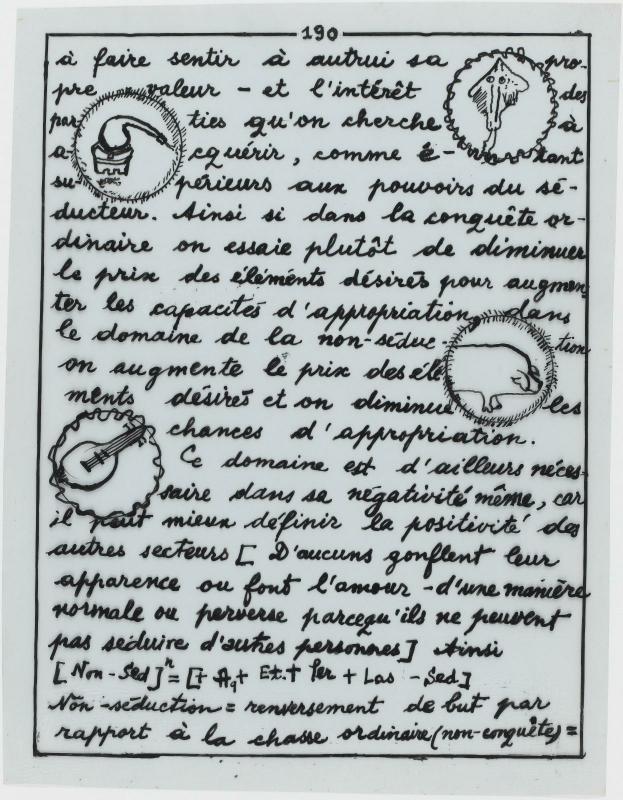 190
à faire sentir à autrui sa pro-
pre valeur - et l'intérêt des
par ties qu'on cherche à
a- cquérir, comme é- tant
su- périeurs aux pouvoirs du sé-
ducteur. Ainsi si dans la conquête or-
dinaire on essaie plutôt de diminuer
le prix des éléments désirés pour augmen
ter les capacités d'appropriation, dans
le domaine de la non-séduc- tion
on augmente le prix des élé
ments désirés et on diminue les
chances d'appropriation.
Ce domaine est d'ailleurs néces-
saire dans sa négativité même, car
il peut mieux définir la positivité des
autres secteurs [ D'aucuns gonflent leur
apparence ou font l'amour - d'une manière
normale ou perverse parcequ'ils ne peuvent
pas séduire d'autres personnes] Ainsi
[Non-Sed]ⁿ = [+ A₉ + Et. + Per + Las - Sed]
Non-séduction = renversement de but par
rapport à la chasse ordinaire (non-conquête) =